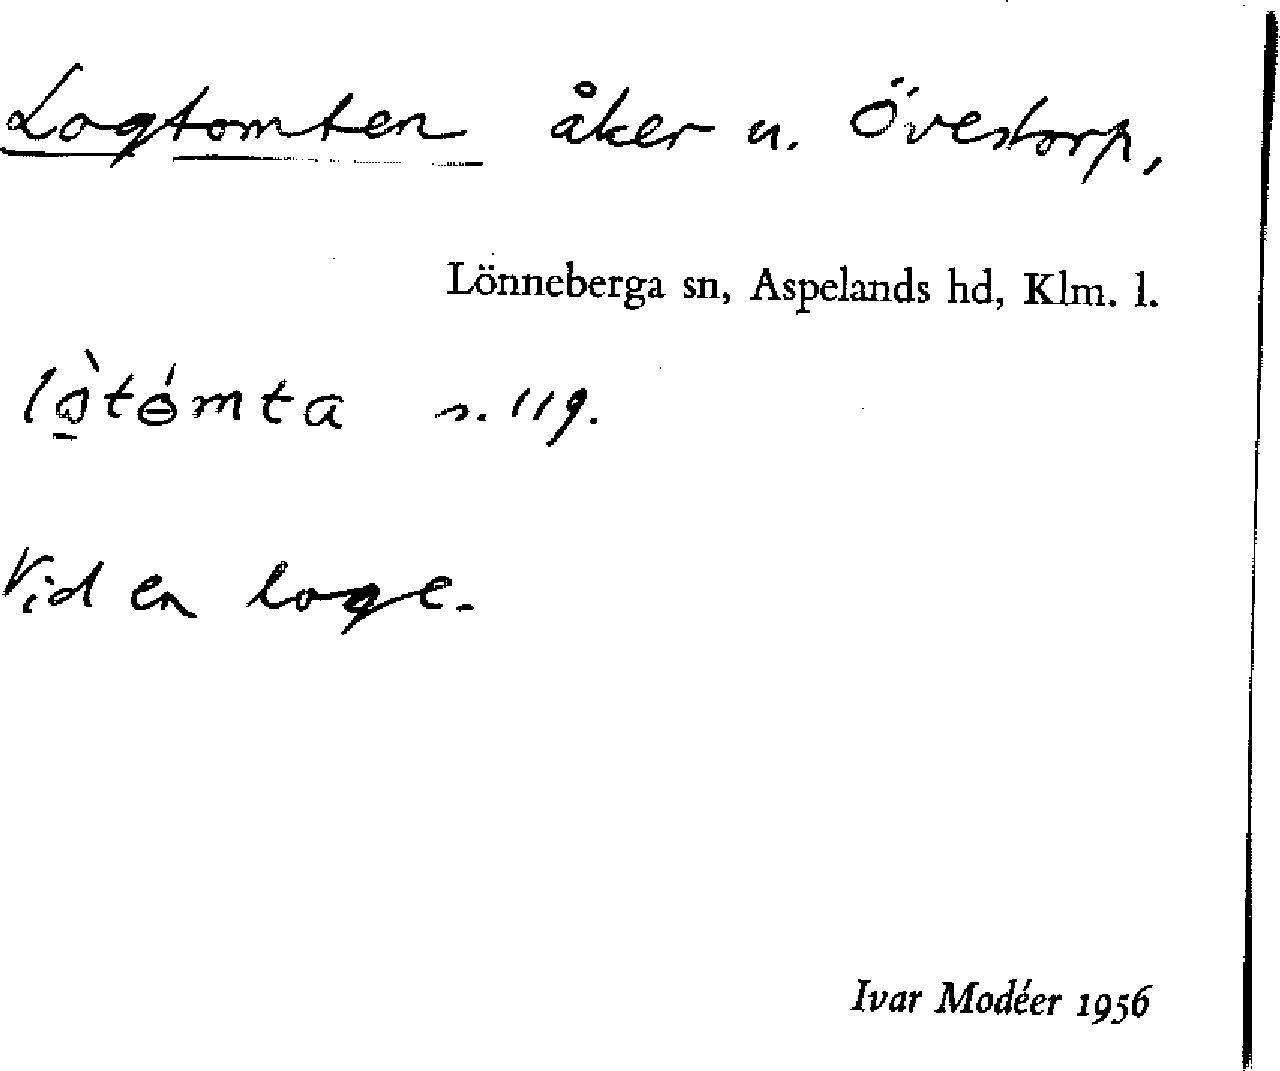 Logtomten åker u. Övestorp,
Lönneberga sn, Aspelands hd, Klm. l.
lò̱tɵ́mta s. 119.
Vid en loge.
Ivar Modéer 1956